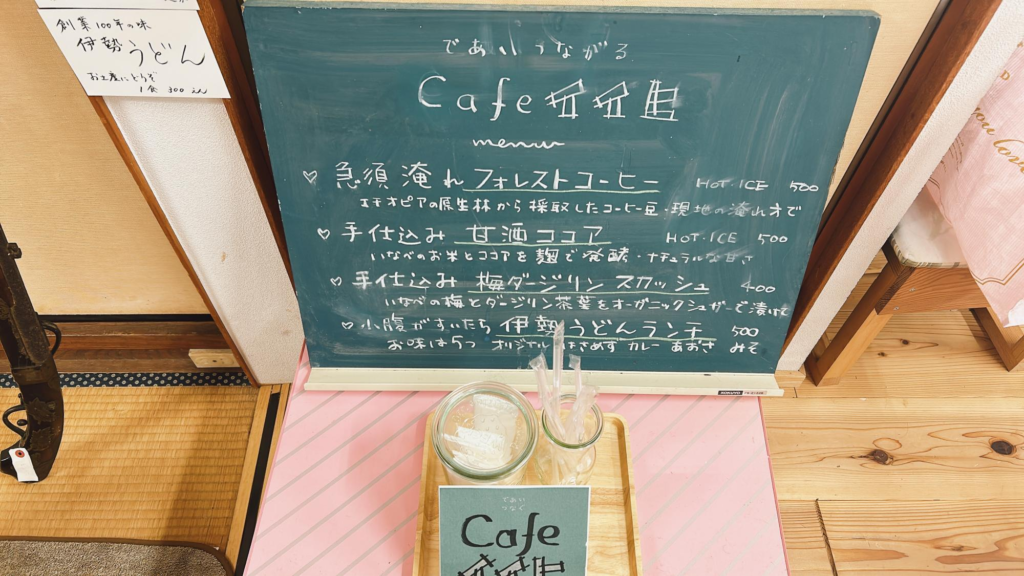 創業100年の味
伊勢うどん
お土産にどうぞ
1食 300 yen
であい つながる
Cafe
menu
♡ 急須淹れフォレストコーヒー HOT・ICE 500
エチオピアの原生林から採取したコーヒー豆・現地の淹れ方で
♡ 手仕込み 甘酒ココア HOT・ICE 500
いなべのお米とココアを麹で発酵・ナチュラルな甘さ
♡ 手仕込み 梅ダージリン スカッシュ 400
いなべの梅とダージリン茶葉をオーガニックシュガーで漬け
♡ 小腹がすいたら 伊勢うどんランチ 500
お味は5つ オリジナル はさめず カレー あおさ みそ
KOKUYO
であい
つなぐ
Cafe